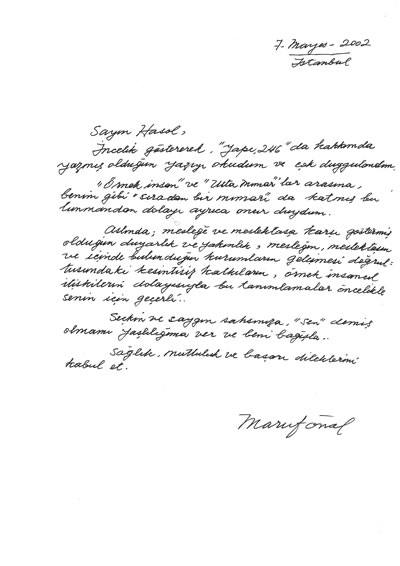 7. Mayıs - 2002
İstanbul
Sayın Hasol,
İncelik göstererek, "Yapı, 246" da hakkımda
yazmış olduğun yazıyı okudum ve çok duygulandım.
"Örnek insan" ve "Usta Mimar"lar arasına,
benim gibi sıradan bir mimarı da katmış bu
lunmandan dolayı ayrıca onur duydum.
Aslında; mesleğe ve meslektaşa karşı göstermiş
olduğun duyarlık ve yakınlık, mesleğin, meslektaşın
ve içinde bulunduğun kurumların gelişmesi doğrul-
tusundaki kesintisiz katkıların, örnek insancıl
ilişkilerin dolayısıyla bu tanımlamalar öncelikle
senin için geçerli..
Seçkin ve saygın şahsınıza, "Sen" demiş
olmamı yaşlılığıma ver ve beni bağışla..
Sağlık, mutluluk ve başarı dileklerimi
kabul et.
Maruf Önal